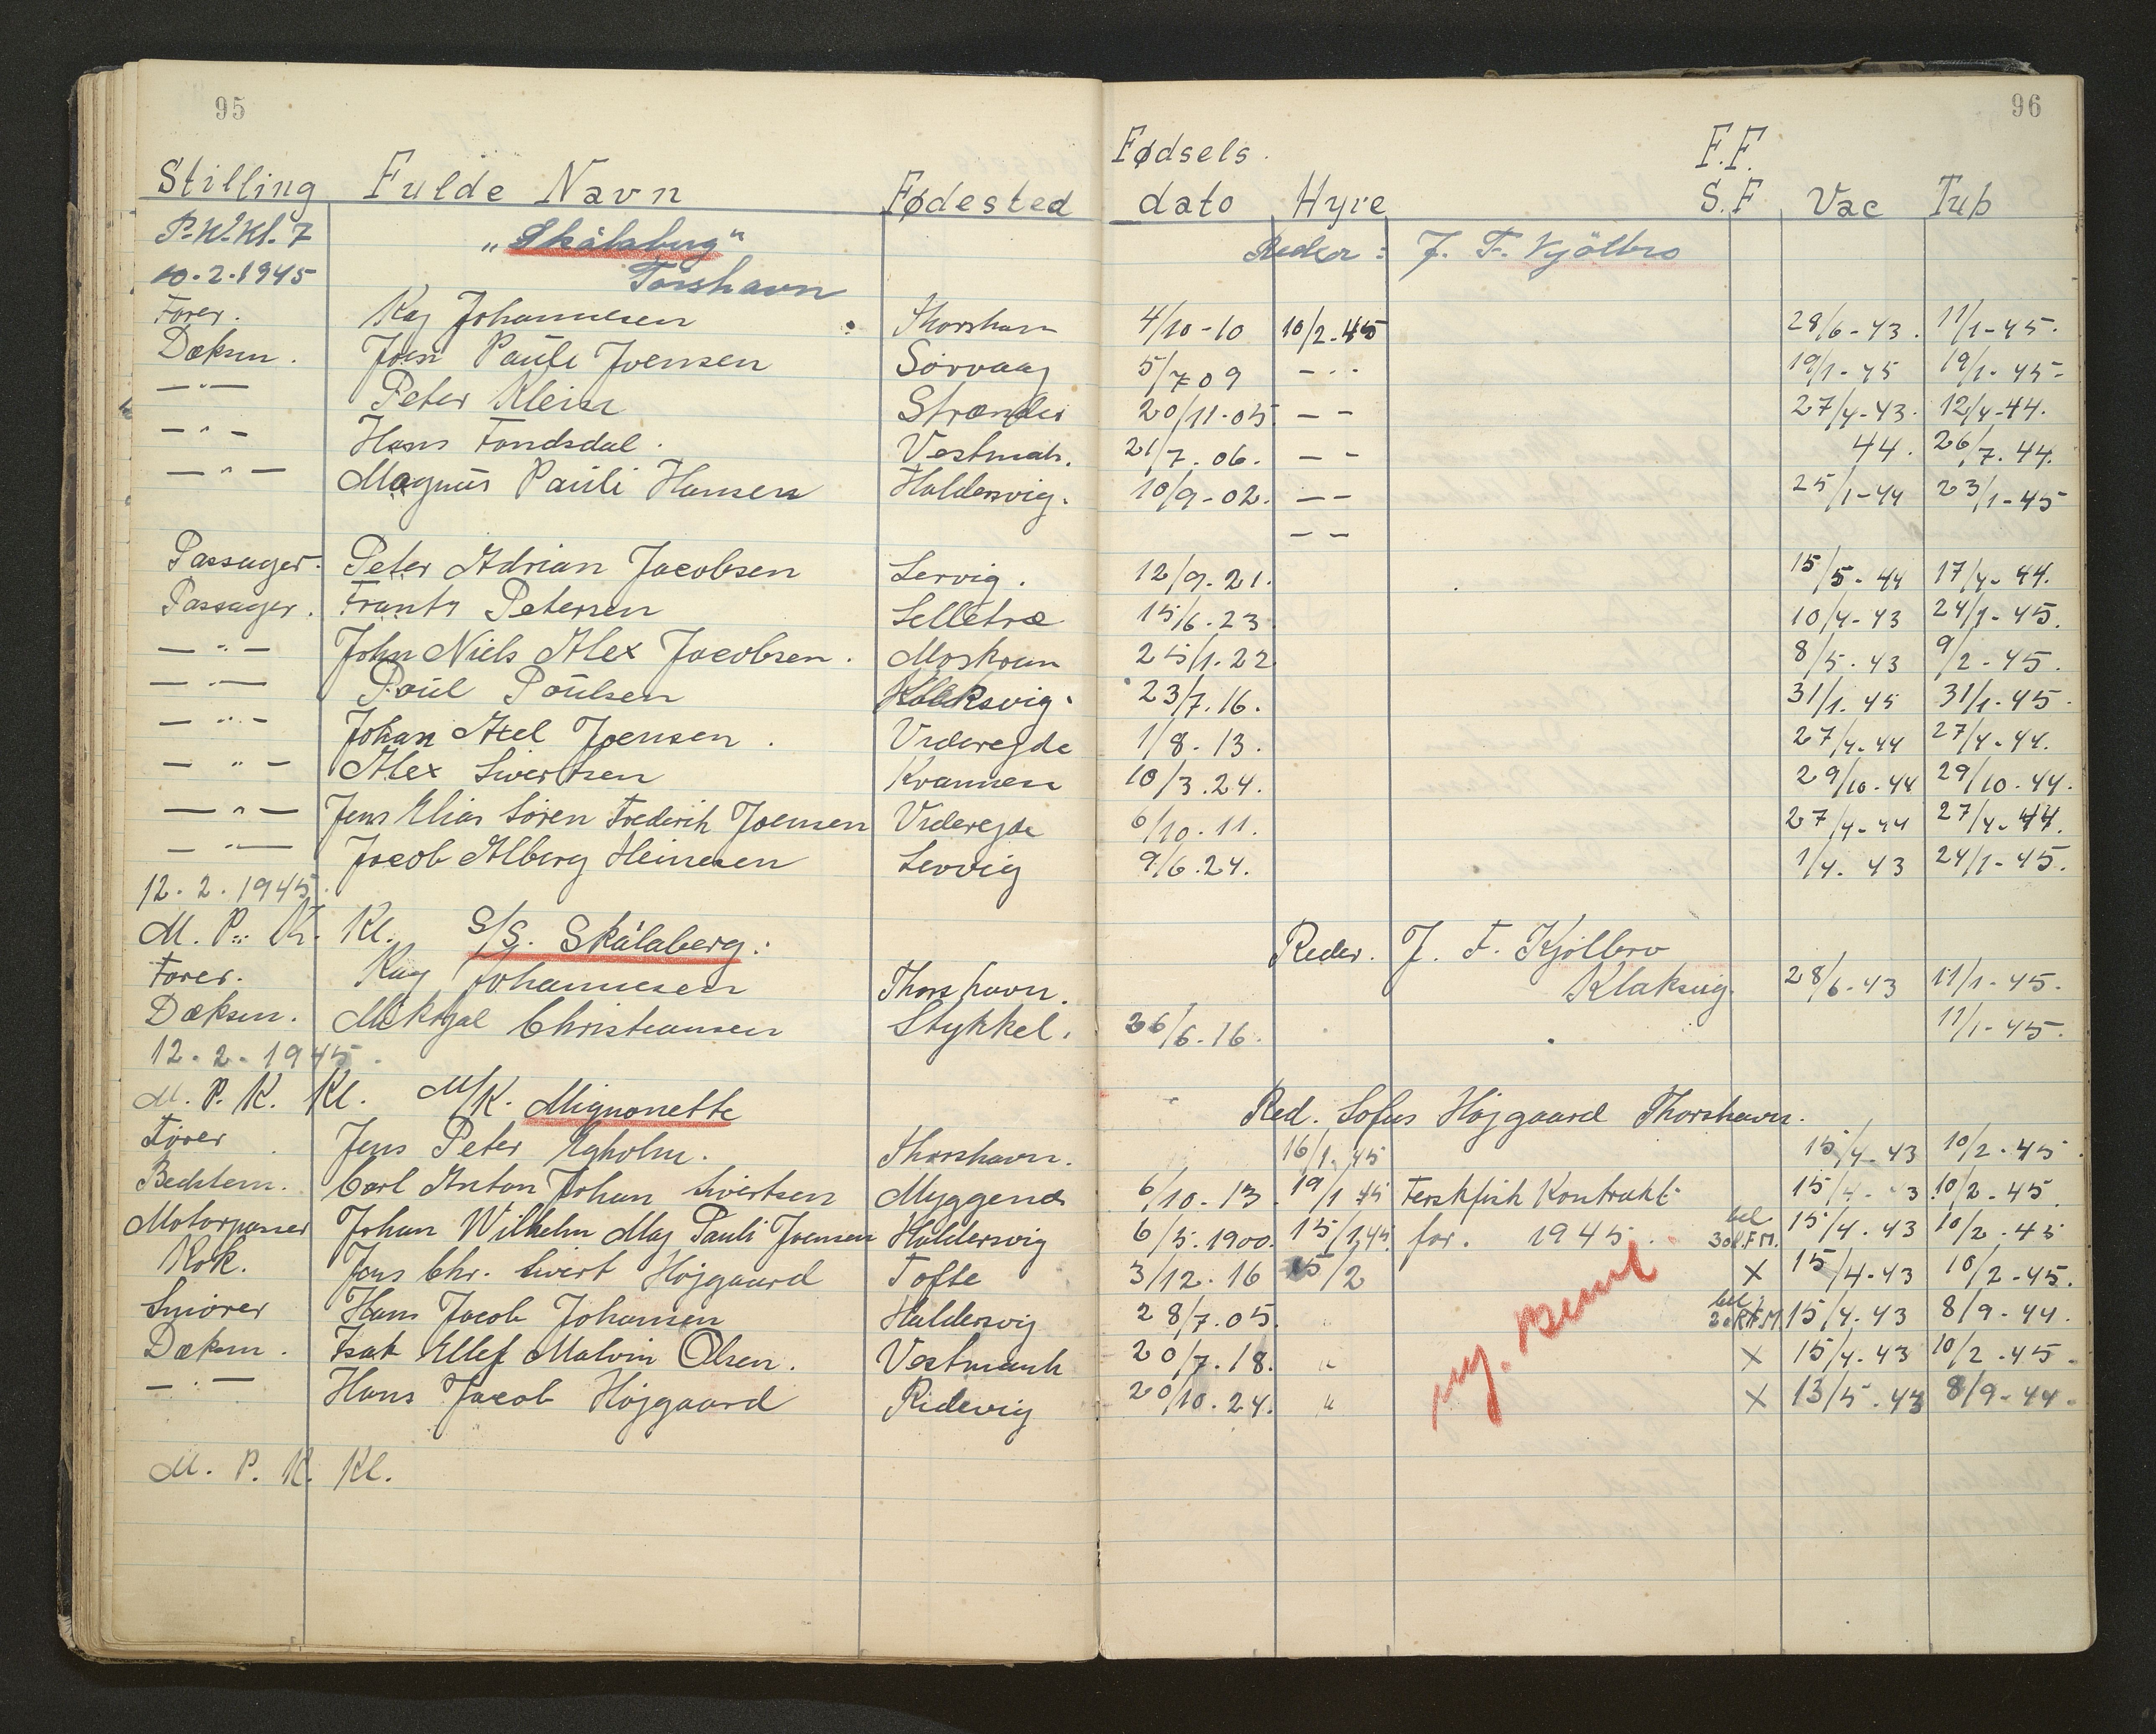 95
96
Stilling Fulde Navn Fødested Fødsels. dato Hyre F.F. S.F Vac Tub
P. K. Kl. 7 "Skålaberg" Reder: J. F. Kjölbro
10.2.1945 Torshavn
Fører. Kaj Johannesen Thorshavn 4/10-10 10/2-45 28/6-43. 11/1-45.
Dæksm. Joen Pauli Joensen Sørvaag 5/7 09 - " - 19/1-45 19/1-45-
— " — Peter Klein Strænder 20/11-05 — - 27/4-43. 12/4-44.
— " — Hans Fandsdal. Vestmah. 21/7.06. — - 44. 26/7.44.
— " — Magnus Pauli Hansen Haldersvig. 10/9-02. — - 25/1-44 23/1-45
— -
Passager. Peter Adrian Jacobsen Lervig. 12/9.21. 15/5-44 17/4-44.
Passager. Frants Petersen Selletræ 15/6.23 10/4-43 24/1-45.
— " — John Niels Alex Jacobsen. Moskoun 25/1.22 8/5.43 9/2-45.
— " — Poul Poulsen Klaksvig. 23/7.16. 31/1.45 31/1-45.
— " — Johan Axel Joensen. Viderejde 1/8.13. 27/4-44 27/4-44.
— " — Alex Sivertsen Kvannes 10/3.24. 29/10.44 29/10.44.
— " — Jens Elias Sören Frederik Joensen Viderejde 6/10.11. 27/4-44 27/4-44.
— " — Jacob Alberg Heinesen Lervig 9/6.24. 1/4.43 24/1-45.
12.2.1945.
M. P. K. Kl. S/S. Skålaberg. Reder. J. F. Kjölbro
Fører. Kaj Johannesen Thorshavn. Klaksvig. 28/6-43 11/1-45.
Dæksm. Mikkjal Christiansen Stykkel. 26/6.16. 11/1-45.
12.2.1945.
M. P. K. Kl. M/K. Mignonette Red. Sofus Højgaard Thorshavn.
Fører Jens Peter Egholm. Thorshavn. 16/1.45 15/4-43 10/2-45.
Bedstem. Carl Anton Johan Sivertsen Myggenæs 6/10.13 19/1 45 Ferskfisk Kontrakt 15/4-43 10/2-45.
Motorpasser Johan Wilhelm Mag Pauli Joensen Haldersvig 6/5.1900. 15/1,45. for. 1945. bel 30K.F.M. 15/4.43 10/2.45
Kok. Jens Chr. Sivert Højgaard Tofte 3/12.16 15/2 X 15/4-43 10/2-45.
Smører Hans Jacob Johansen Haldersvig 28/7.05. " bel 20K.F.M 15/4.43 8/9-44.
Dæksm. Isak Ellef Malvin Olsen. Vestmanh 20/7.18. " X 15/4.43 10/2.45.
— " — Hans Jacob Højgaard Ridevig 20/10.24. " X 13/5.43 8/9-44.
M. P. K. Kl.